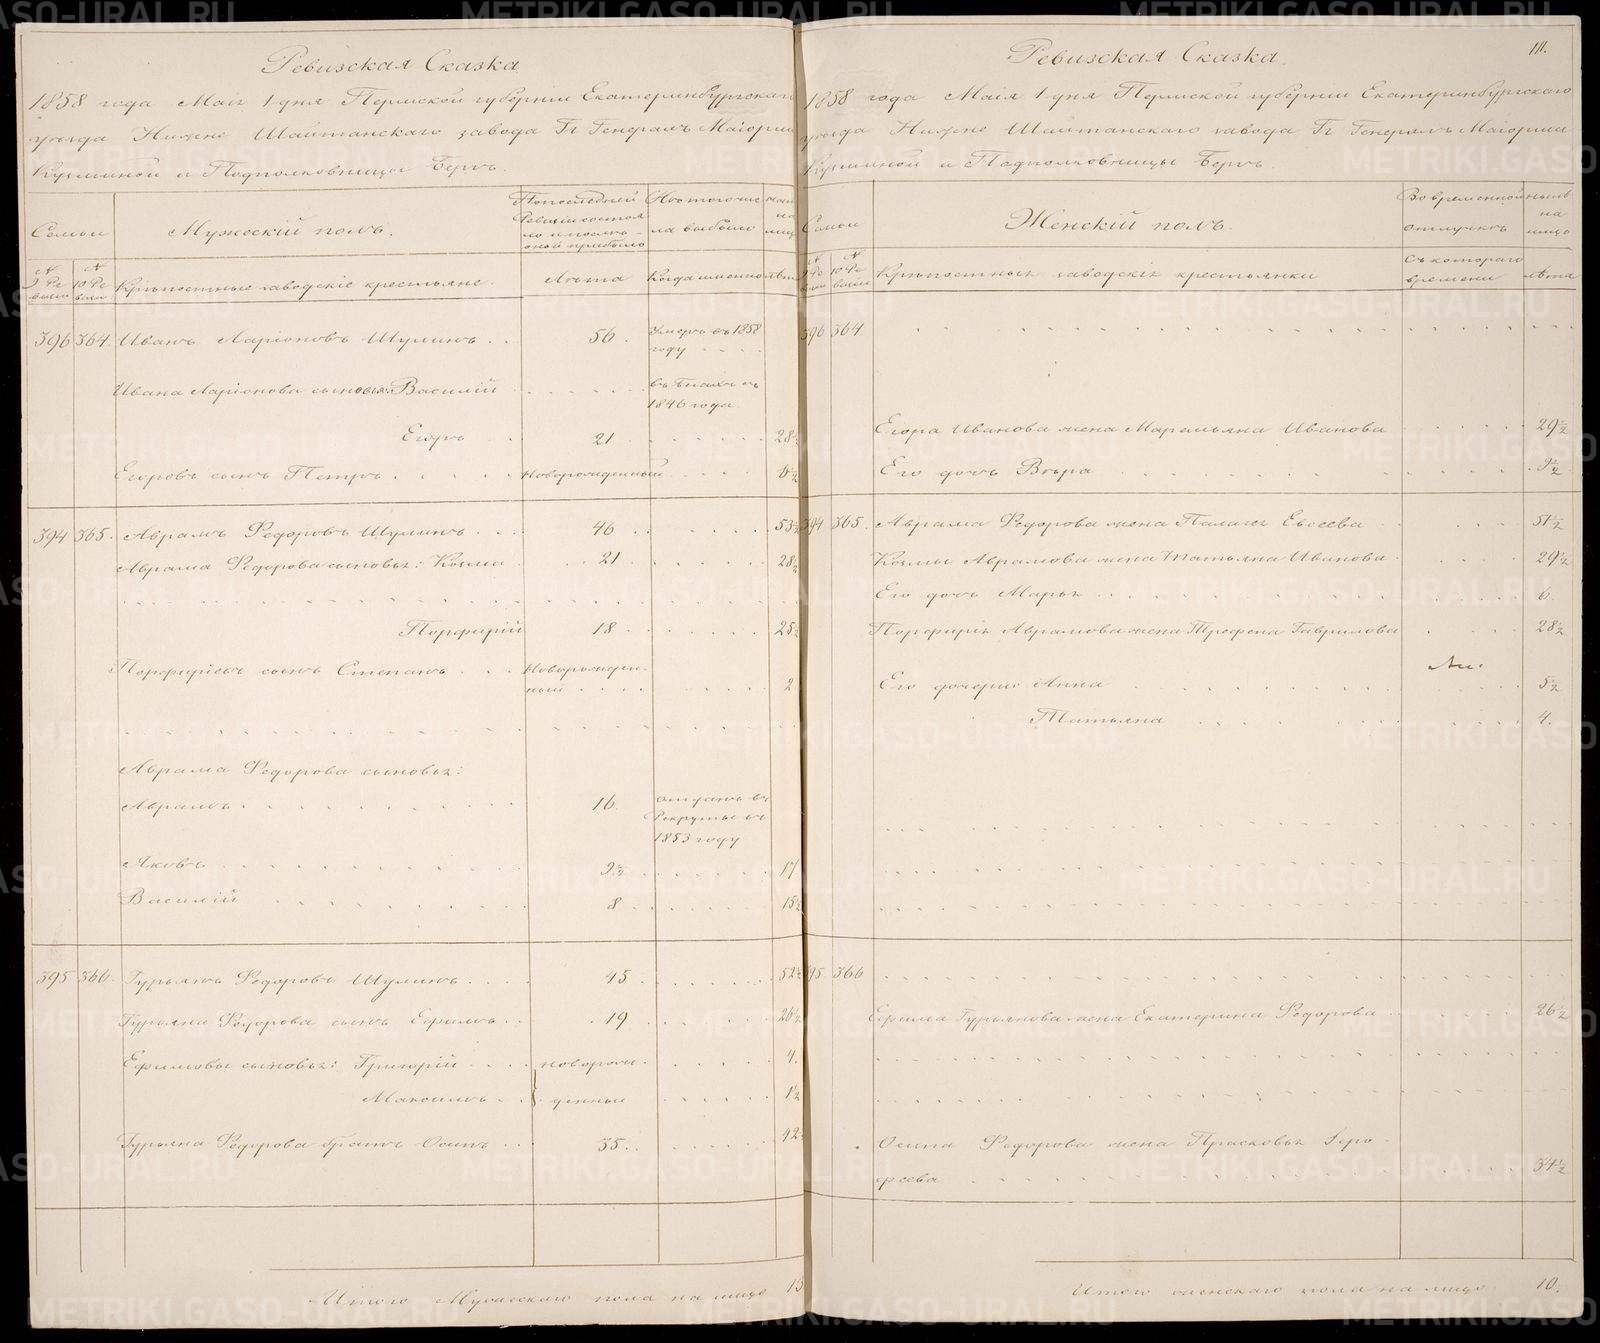 Ревизская Сказка
1858 года Маія 1 дня Пермской губерніи Екатеринбургскаго
уѣзда Нижне Шайтанскаго завода Гг Генералъ Маіорши
Кузьминой и Подполковницы Бергъ.
Семьи
Мужескій полъ.
По последней Ревизіи состояло и после оной прибыло
Изъ того числа выбыло
ныне на лицо
№ 9 Ревизіи
№ 10 Ревизіи
Крѣпостные заводскіе крестьяне.
Лѣта
Когда именно
лѣта
396 364 Иванъ Ларіоновъ Шулинъ . . 56. Умеръ въ 1858 году
Ивана Ларіонова сыновья: Василій въ бѣгахъ съ 1846 года
Егоръ 21 28½
Егоровъ сынъ Петръ Новорожденный 6½
394 365. Аврамъ Федоровъ Шулинъ 46 53½
Аврама Федорова сыновья: Козма 21 28½
Порфирій 18 25½
Порфиріевъ сынъ Степанъ Новорожденный 2
Аврама Федорова сыновья:
Аврамъ 16. отданъ въ Рекруты въ 1853 году
Яковъ 9½ 17
Василій 8 15½
395 366. Гурьянъ Федоровъ Шулинъ 45 52½
Гурьяна Федорова сынъ Ефимъ 19 26½
Ефимовы сыновья: Григорій новорож- 4.
Максимъ денные 1½
Гурьяна Федорова братъ Осипъ 35. 42½
Итого Мужескаго пола на лицо 13
111.
Ревизская Сказка
1858 года Маія 1 дня Пермской губерніи Екатеринбургскаго
уѣзда Нижне Шайтанскаго завода Гг Генералъ Маіорши
Кузьминой и Подполковницы Бергъ.
Семьи
Женскій полъ.
Во временной отлучкѣ
ныне на лицо
№ 9 Ревизіи
№ 10 Ревизіи
Крѣпостныя заводскія крестьянки
Съ котораго времени
лѣта
396 364
Егора Иванова жена Маремьяна Иванова 29½
Его дочь Вѣра 9½
394 365. Аврама Федорова жена Палагея Евсеева 51½
Козмы Аврамова жена Татьяна Иванова 29½
Его дочь Марья 6
Порфирія Аврамова жена Трефена Гаврилова 28½
Его дочери: Анна 5½
Татьяна 4.
395 366
Ефима Гурьянова жена Екатерина Федорова 26½
Осипа Федорова жена Прасковья Еро-
феева 34½
Итого женскаго пола на лицо 10.
METRIKI.GASO-URAL.RU